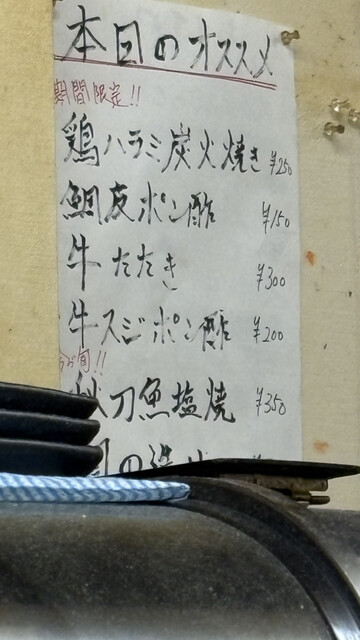 本日のオススメ
期間限定!!
鶏ハラミ炭火焼き ¥250
鯛皮ポン酢 ¥150
牛たたき ¥300
牛スジポン酢 ¥200
旬!!
秋刀魚塩焼 ¥350
の造り